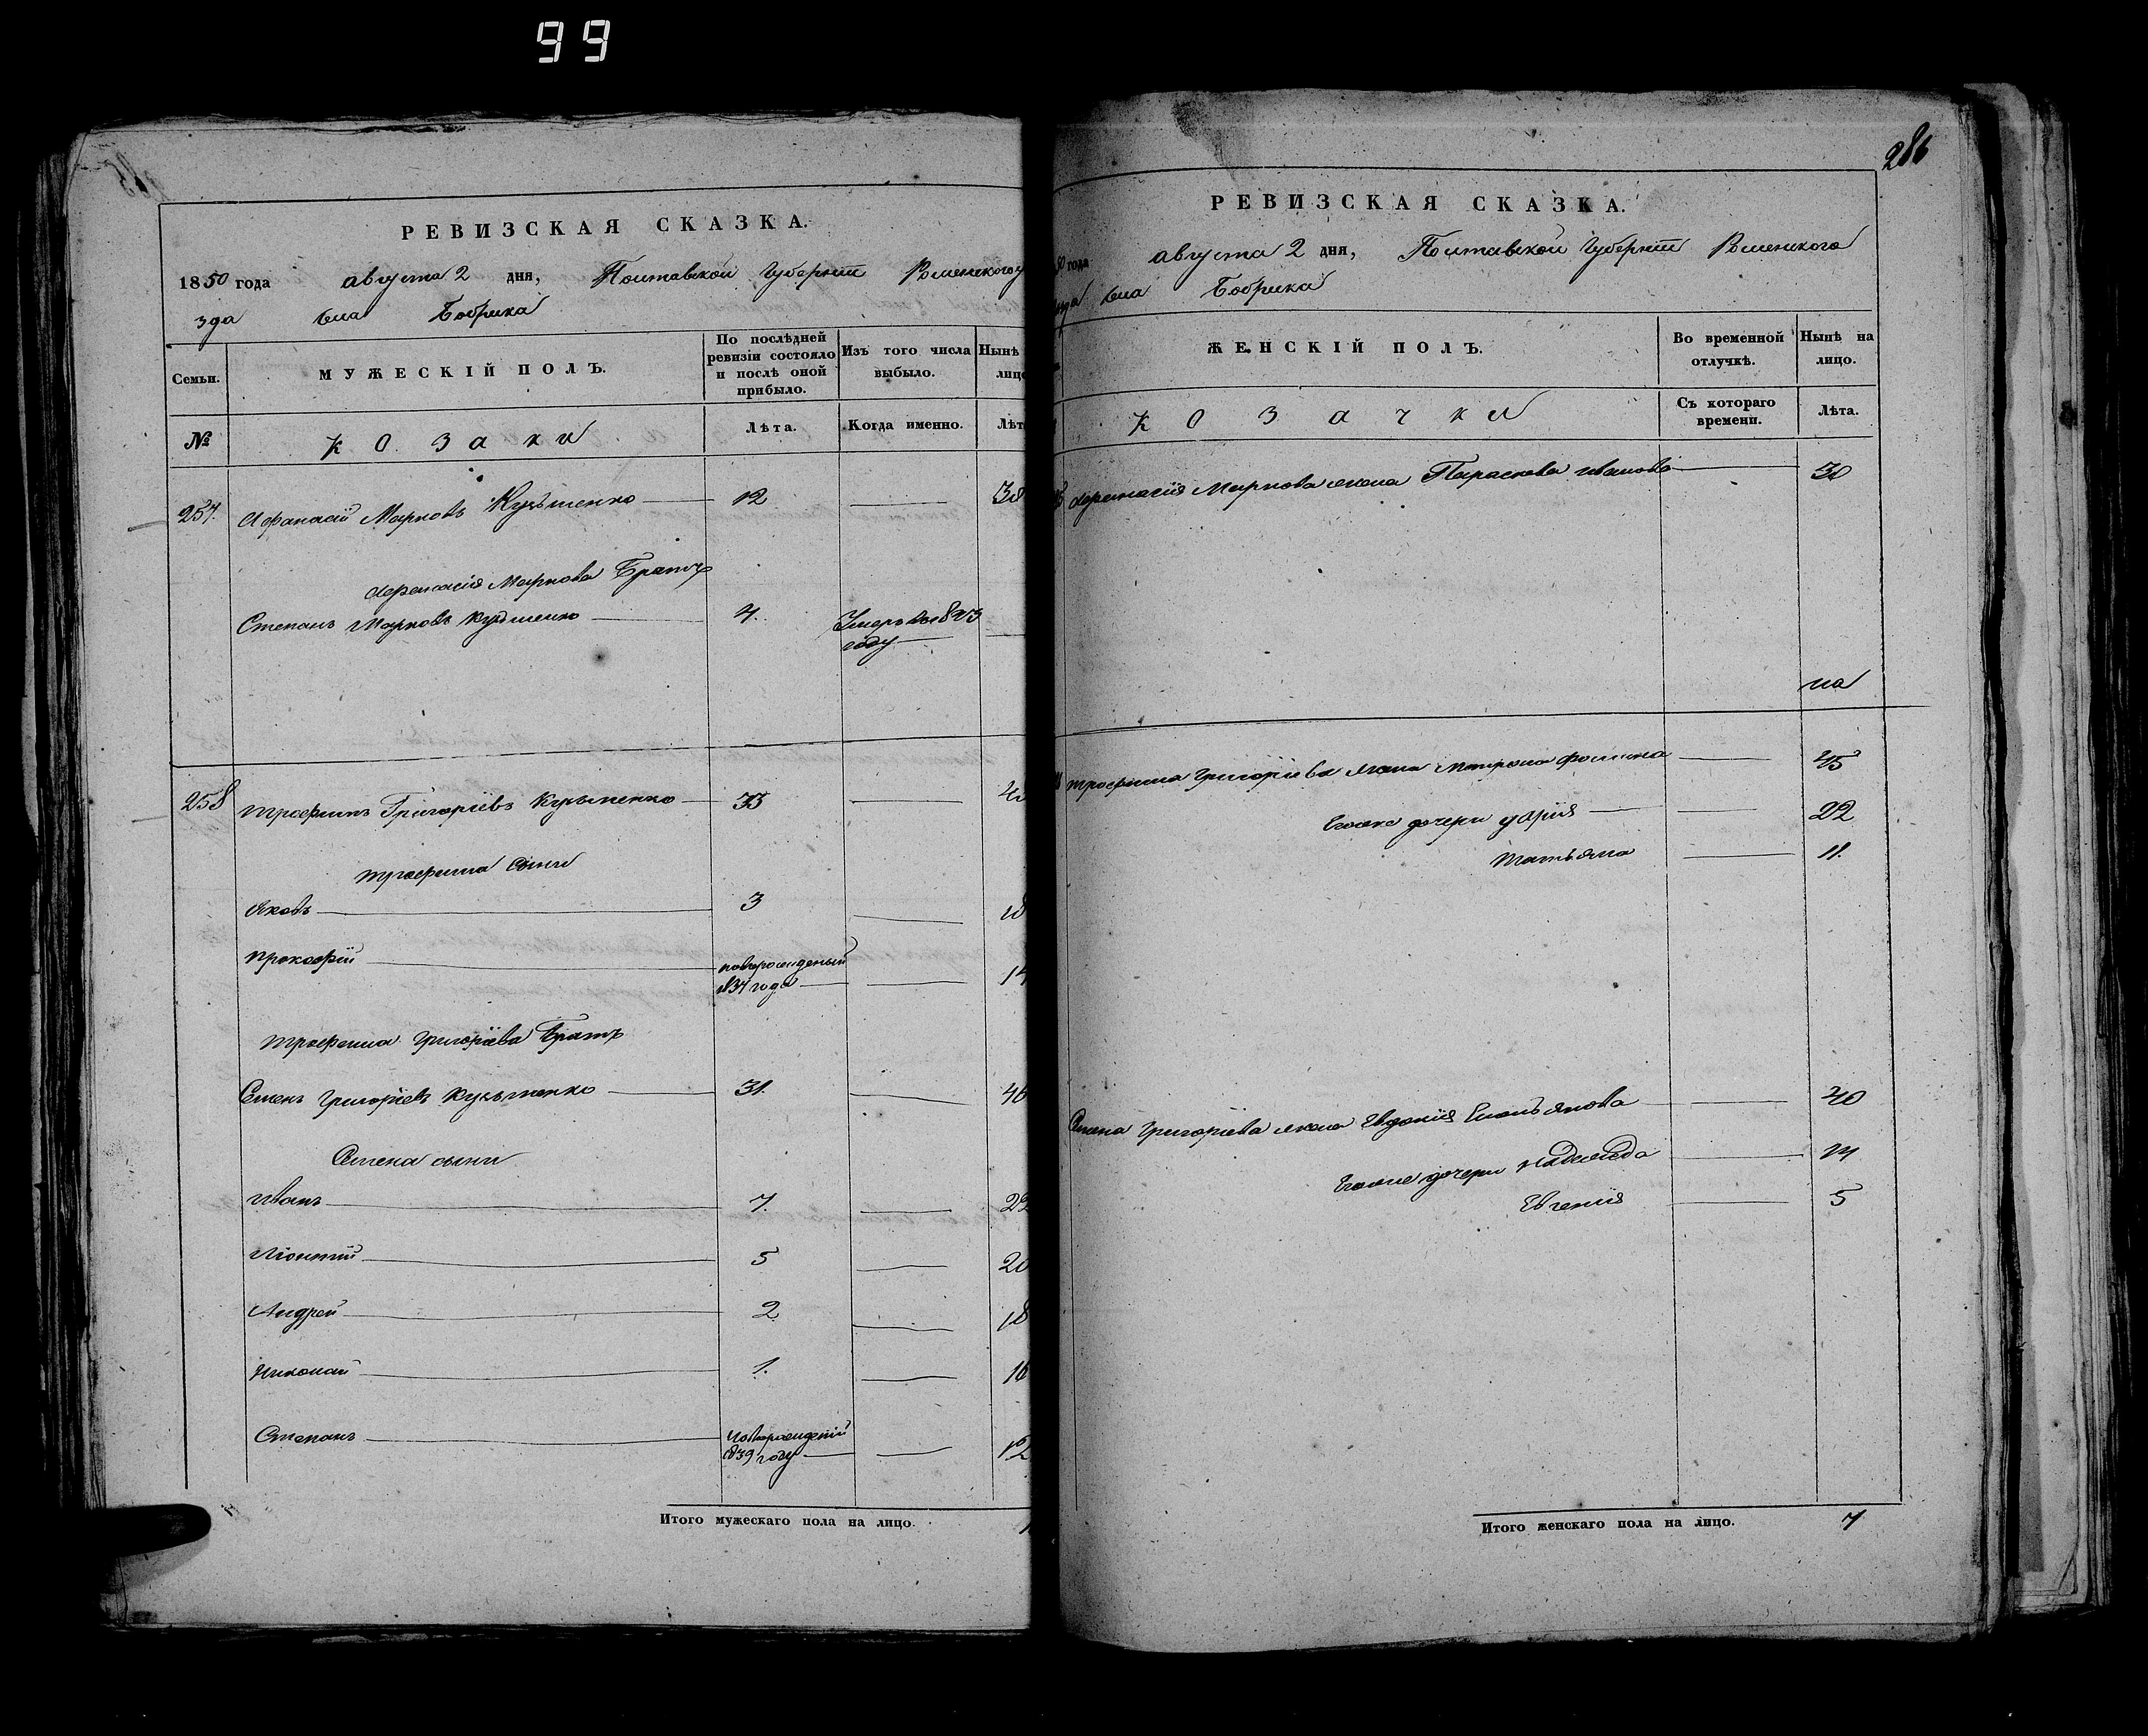 99
РЕВИЗСКАЯ СКАЗКА.
1850 года августа 2 дня, Полтавской Губернии Роменского у
зда села Бобрика
Семьи. МУЖЕСКІЙ ПОЛЪ. По послѣдней ревизіи состояло и послѣ оной прибыло. Изъ того числа выбыло. Нынѣ лице
№ козаки Лѣта. Когда именно. Лѣт
257. Афанасій Марковъ Кузьменко 12 38
Афанасія Маркова Братъ
Степанъ Марковъ Кузьменко 4. Умеръ в 1843
году
258 Трофимъ Григоріевъ Кузьменко 33
Трофима сыни
Яковъ 3 18
Прокофій новорожденый
1834 года 14
Трофима Григоріева Братъ
Семенъ Григоріевъ Кузьменко 31. 46
Семена сыни
Иванъ 7. 22
Ліонтій 5 20
Андрей 2 18
Николай 1. 16
Степанъ
1839 году 12
Итого мужескаго пола на лицо. 1
286
РЕВИЗСКАЯ СКАЗКА.
50 года августа 2 дня, Полтавской Губернии Роменского
езда села Бобрика
ЖЕНСКІЙ ПОЛЪ. Во временной отлучкѣ. Нынѣ на лицо.
козачки Съ котораго времени. Лѣта.
Афанасія Маркова жена Параскева Иванова 30
Трофима Григоріева жена Матрона Фомина 45
Егоже дочери Дарія 22
Татьяна 11.
Семена Григоріева жена Евдокія Емельянова 40
Егоже дочери Надежда 14
Евгенія 5
Итого женскаго пола на лицо. 7